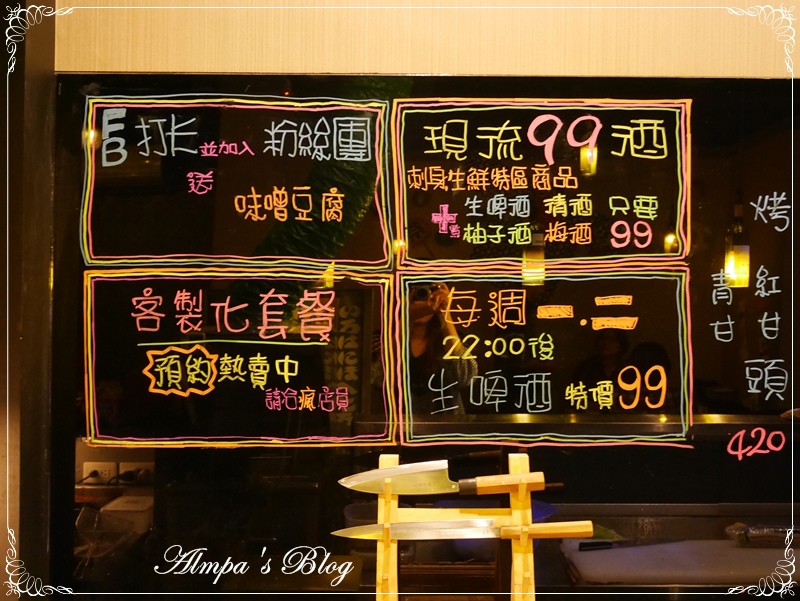 FB打卡並加入 粉絲團
送
味噌豆腐
現流99酒
刺身生鮮特區商品
+ 生啤酒 清酒 只要
柚子酒 梅酒 99
客製化套餐
預約熱賣中
請合瘋店員
每週一.二
22:00後
生啤酒 特價99
烤
青甘
紅甘
頭
420
Almpa's Blog